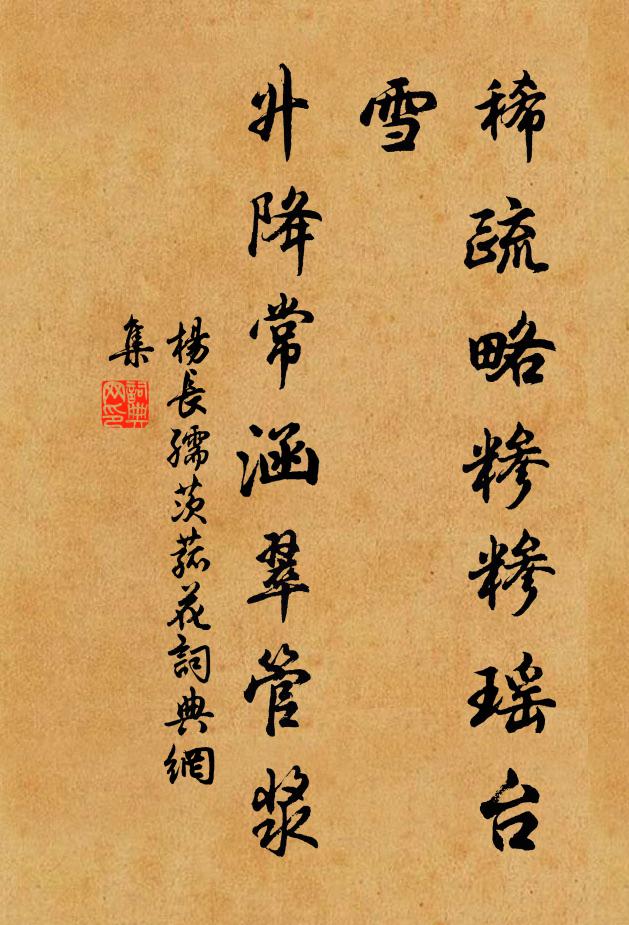 稀疏略糁糁瑶台
雪
升降常涵翠管浆
楊長孺茨菰花詞典網
集
詞典
网印